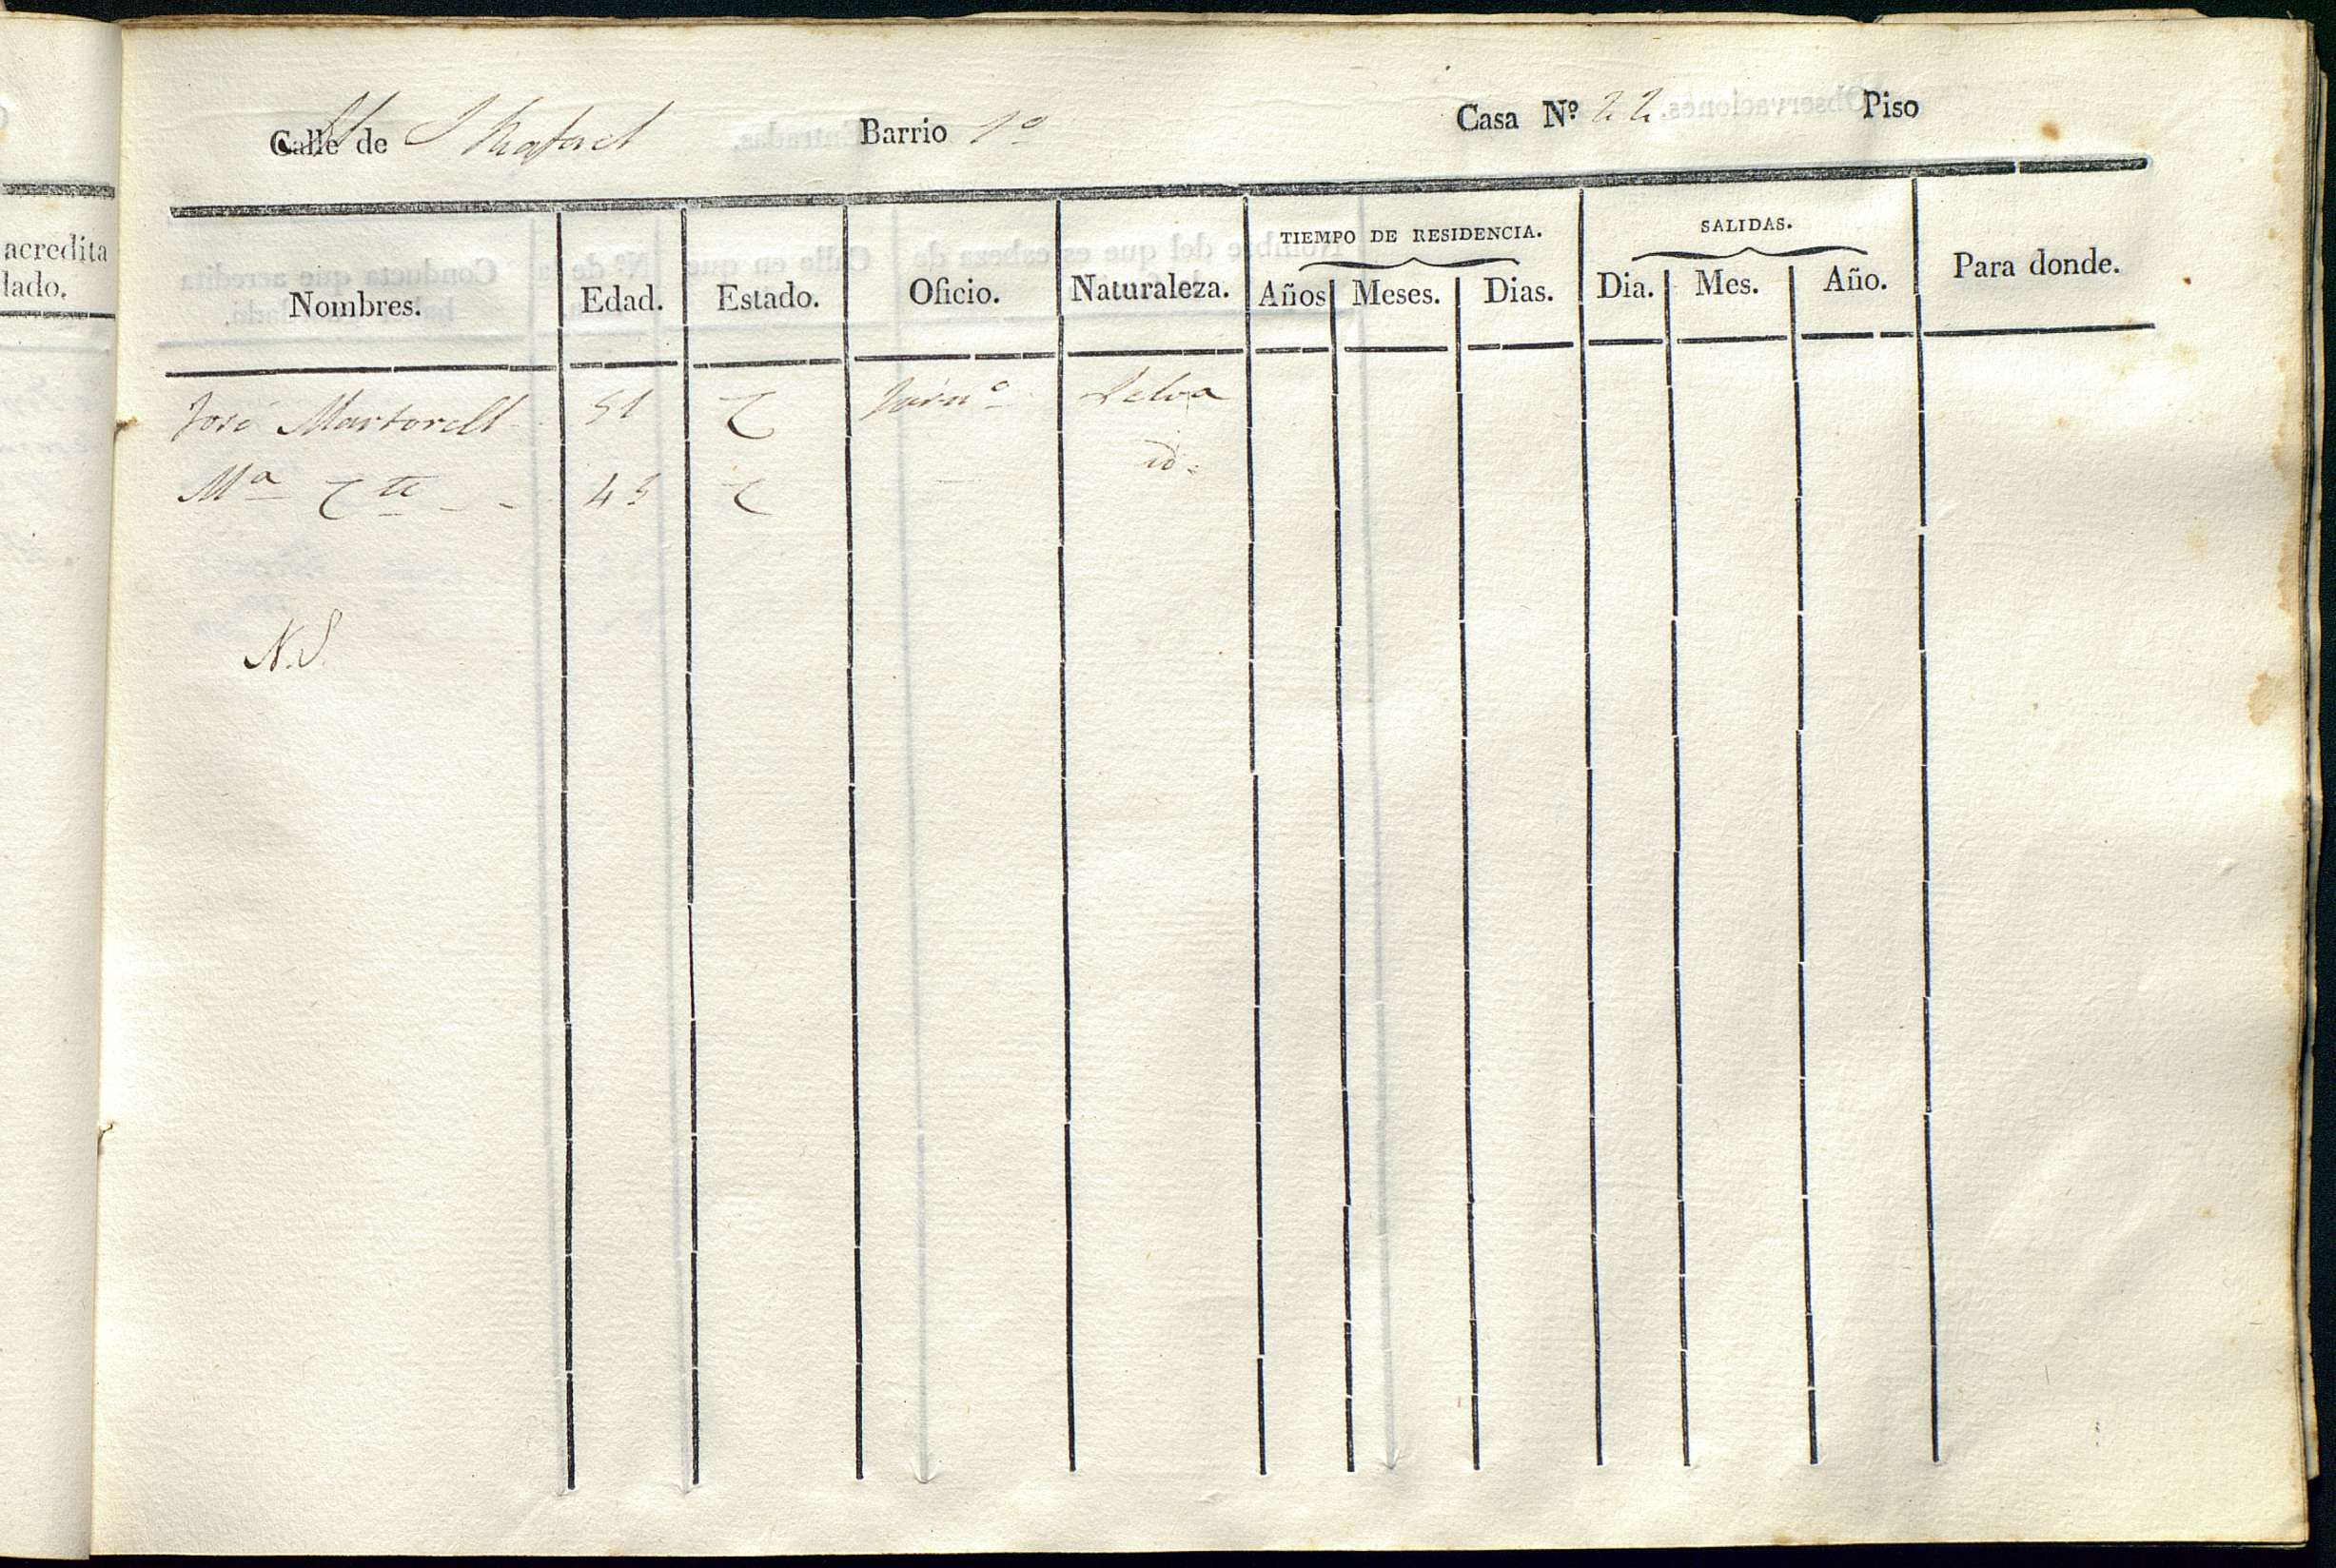 acredita
lado.
Calle de S Rafael Barrio 1º Casa Nº 22 Piso
TIEMPO DE RESIDENCIA. SALIDAS.
Nombres. Edad. Estado. Oficio. Naturaleza. Años Meses. Dias. Dia. Mes. Año. Para donde.
José Martorell 51 C Jornº Selva
Mª C te 45 C id.
N.S.